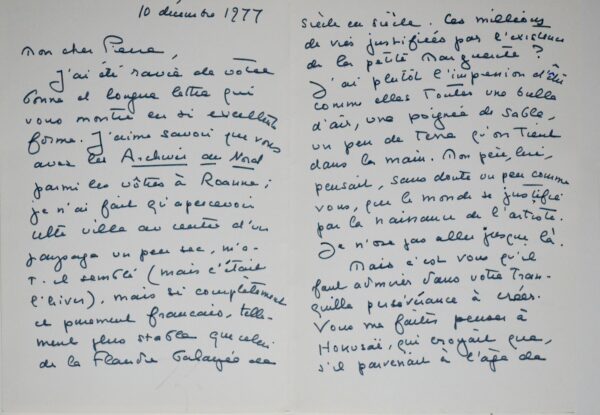 10 décembre 1977
Mon cher Pierre,
J'ai été ravie de votre
bonne et longue lettre qui
vous montre en si excellente
forme. J'aime savoir que vous
avez lu Archives du Nord
parmi les vôtres à Roanne ;
je n'ai fait qu'apercevoir
cette ville au centre d'un
paysage un peu sec, m'a-
t-il semblé (mais c'était
l'hiver), mais si complètement
et purement français, telle-
ment plus stable que celui
de la Flandre balayée de
siècle en siècle. Ces millions
de vies justifiées par l'existence
de la petite Marguerite ?
J'ai plutôt l'impression d'être
comme elles toutes une bulle
d'air, une poignée de sable,
un peu de terre qu'on tient
dans la main. Mon père, lui,
pensait, sans doute un peu comme
vous, que le monde se justifie
par la naissance de l'artiste.
Je n'ose pas aller jusque là.
Mais c'est vous qu'il
faut admirer dans votre tran-
quille persévérance à créer.
Vous me faites penser à
Hokusaï, qui croyait que,
s'il parvenait à l'âge de